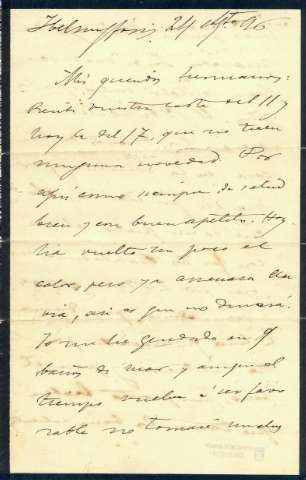 Helsingfors, 24 Agto 96
Mis queridos hermanos:
Recibí vuestra carta del 11 y
hoy la del 17, que no traen
ninguna novedad. Por
aquí como siempre de salud
bien y con buen apetito. Hoy
ha vuelto un poco el
calor, pero ya amenaza llu
via, así es que no durará.
Yo me he quedado en 9
baños de mar, y aunque el
tiempo vuelva á ser favo
rable no tomaré muchos